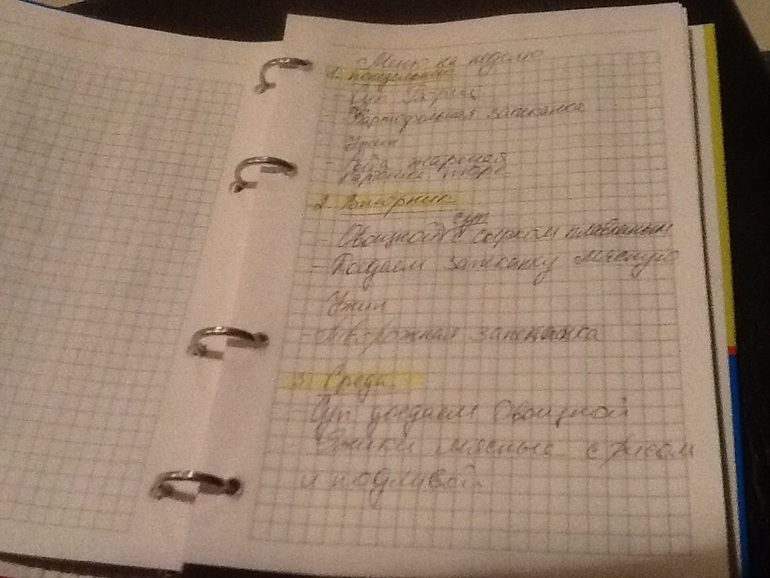 Меню на неделю
1. Понедельник
Суп
- Картофельная запеканка
Ужин
- Рыба жареная
картошка пюре
2. Вторник
суп
- Овощной с сырком плавленым
- Доедаем запеканку мясную
Ужин
- Творожная запеканка
3. Среда
Суп доедаем Овощной
Ёжики мясные с рисом
и подливой